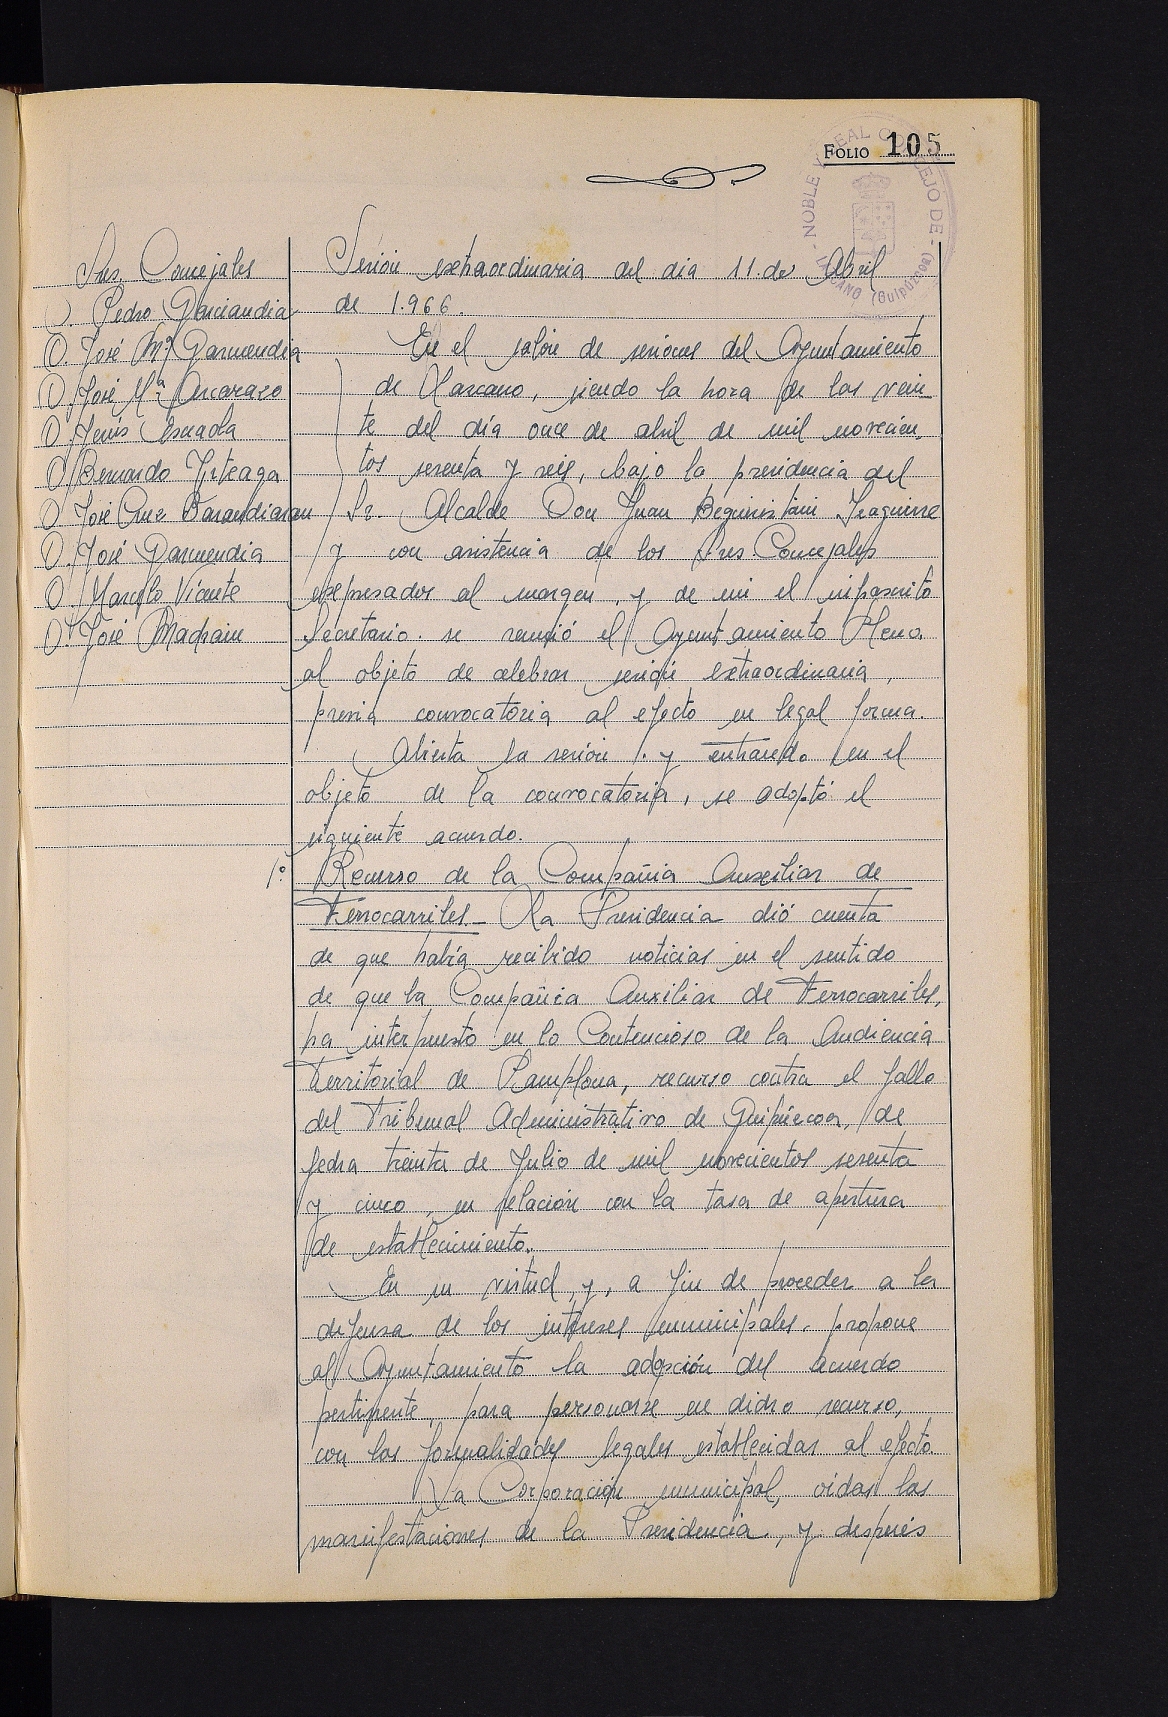 FOLIO 105
NOBLE Y REAL CONCEJO DE
LAZCANO (Guipúzcoa)
Sres. Concejales
D. Pedro Garciandia
D. José Mª Garmendia
D. José Mª Ascarazo
D. Jesús Esnaola
D. Bernardo Urteaga
D. José Cruz Barandiaran
D. José Garmendia
D. Marcelo Vicente
D. José Madrain
Sesión extraordinaria del dia 11 de Abril
de 1.966.
En el salón de sesiones del Ayuntamiento
de Lazcano, siendo la hora de las vein
te del día once de abril de mil novecien
tos sesenta y seis, bajo la presidencia del
Sr. Alcalde Don Juan Beguiristain Iraguirre
y con asistencia de los Sres Concejales
expresados al margen, y de mi el infrascrito
Secretario. se reunió el Ayuntamiento Pleno,
al objeto de celebrar sesión extraordinaria,
previa convocatoria al efecto en legal forma.
Abierta la sesión, y entrando en el
objeto de la convocatoria, se adoptó el
siguiente acuerdo.
1º Recurso de la Compañia Auxiliar de
Ferrocarriles.- La Presidencia dió cuenta
de que había recibido noticias en el sentido
de que la Compañia Auxiliar de Ferrocarriles,
ha interpuesto en lo Contencioso de la Audiencia
Territorial de Pamplona, recurso contra el fallo
del Tribunal Administrativo de Guipúzcoa, de
fecha treinta de Julio de mil novecientos sesenta
y cinco, en relación con la tasa de apertura
de establecimiento.
En su virtud, y, a fin de proceder a la
defensa de los intereses municipales, propone
al Ayuntamiento la adopción del acuerdo
pertinente, para personarse en dicho recurso,
con las formalidades legales establecidas al efecto
La Corporación municipal, oidas las
manifestaciones de la Presidencia, y después